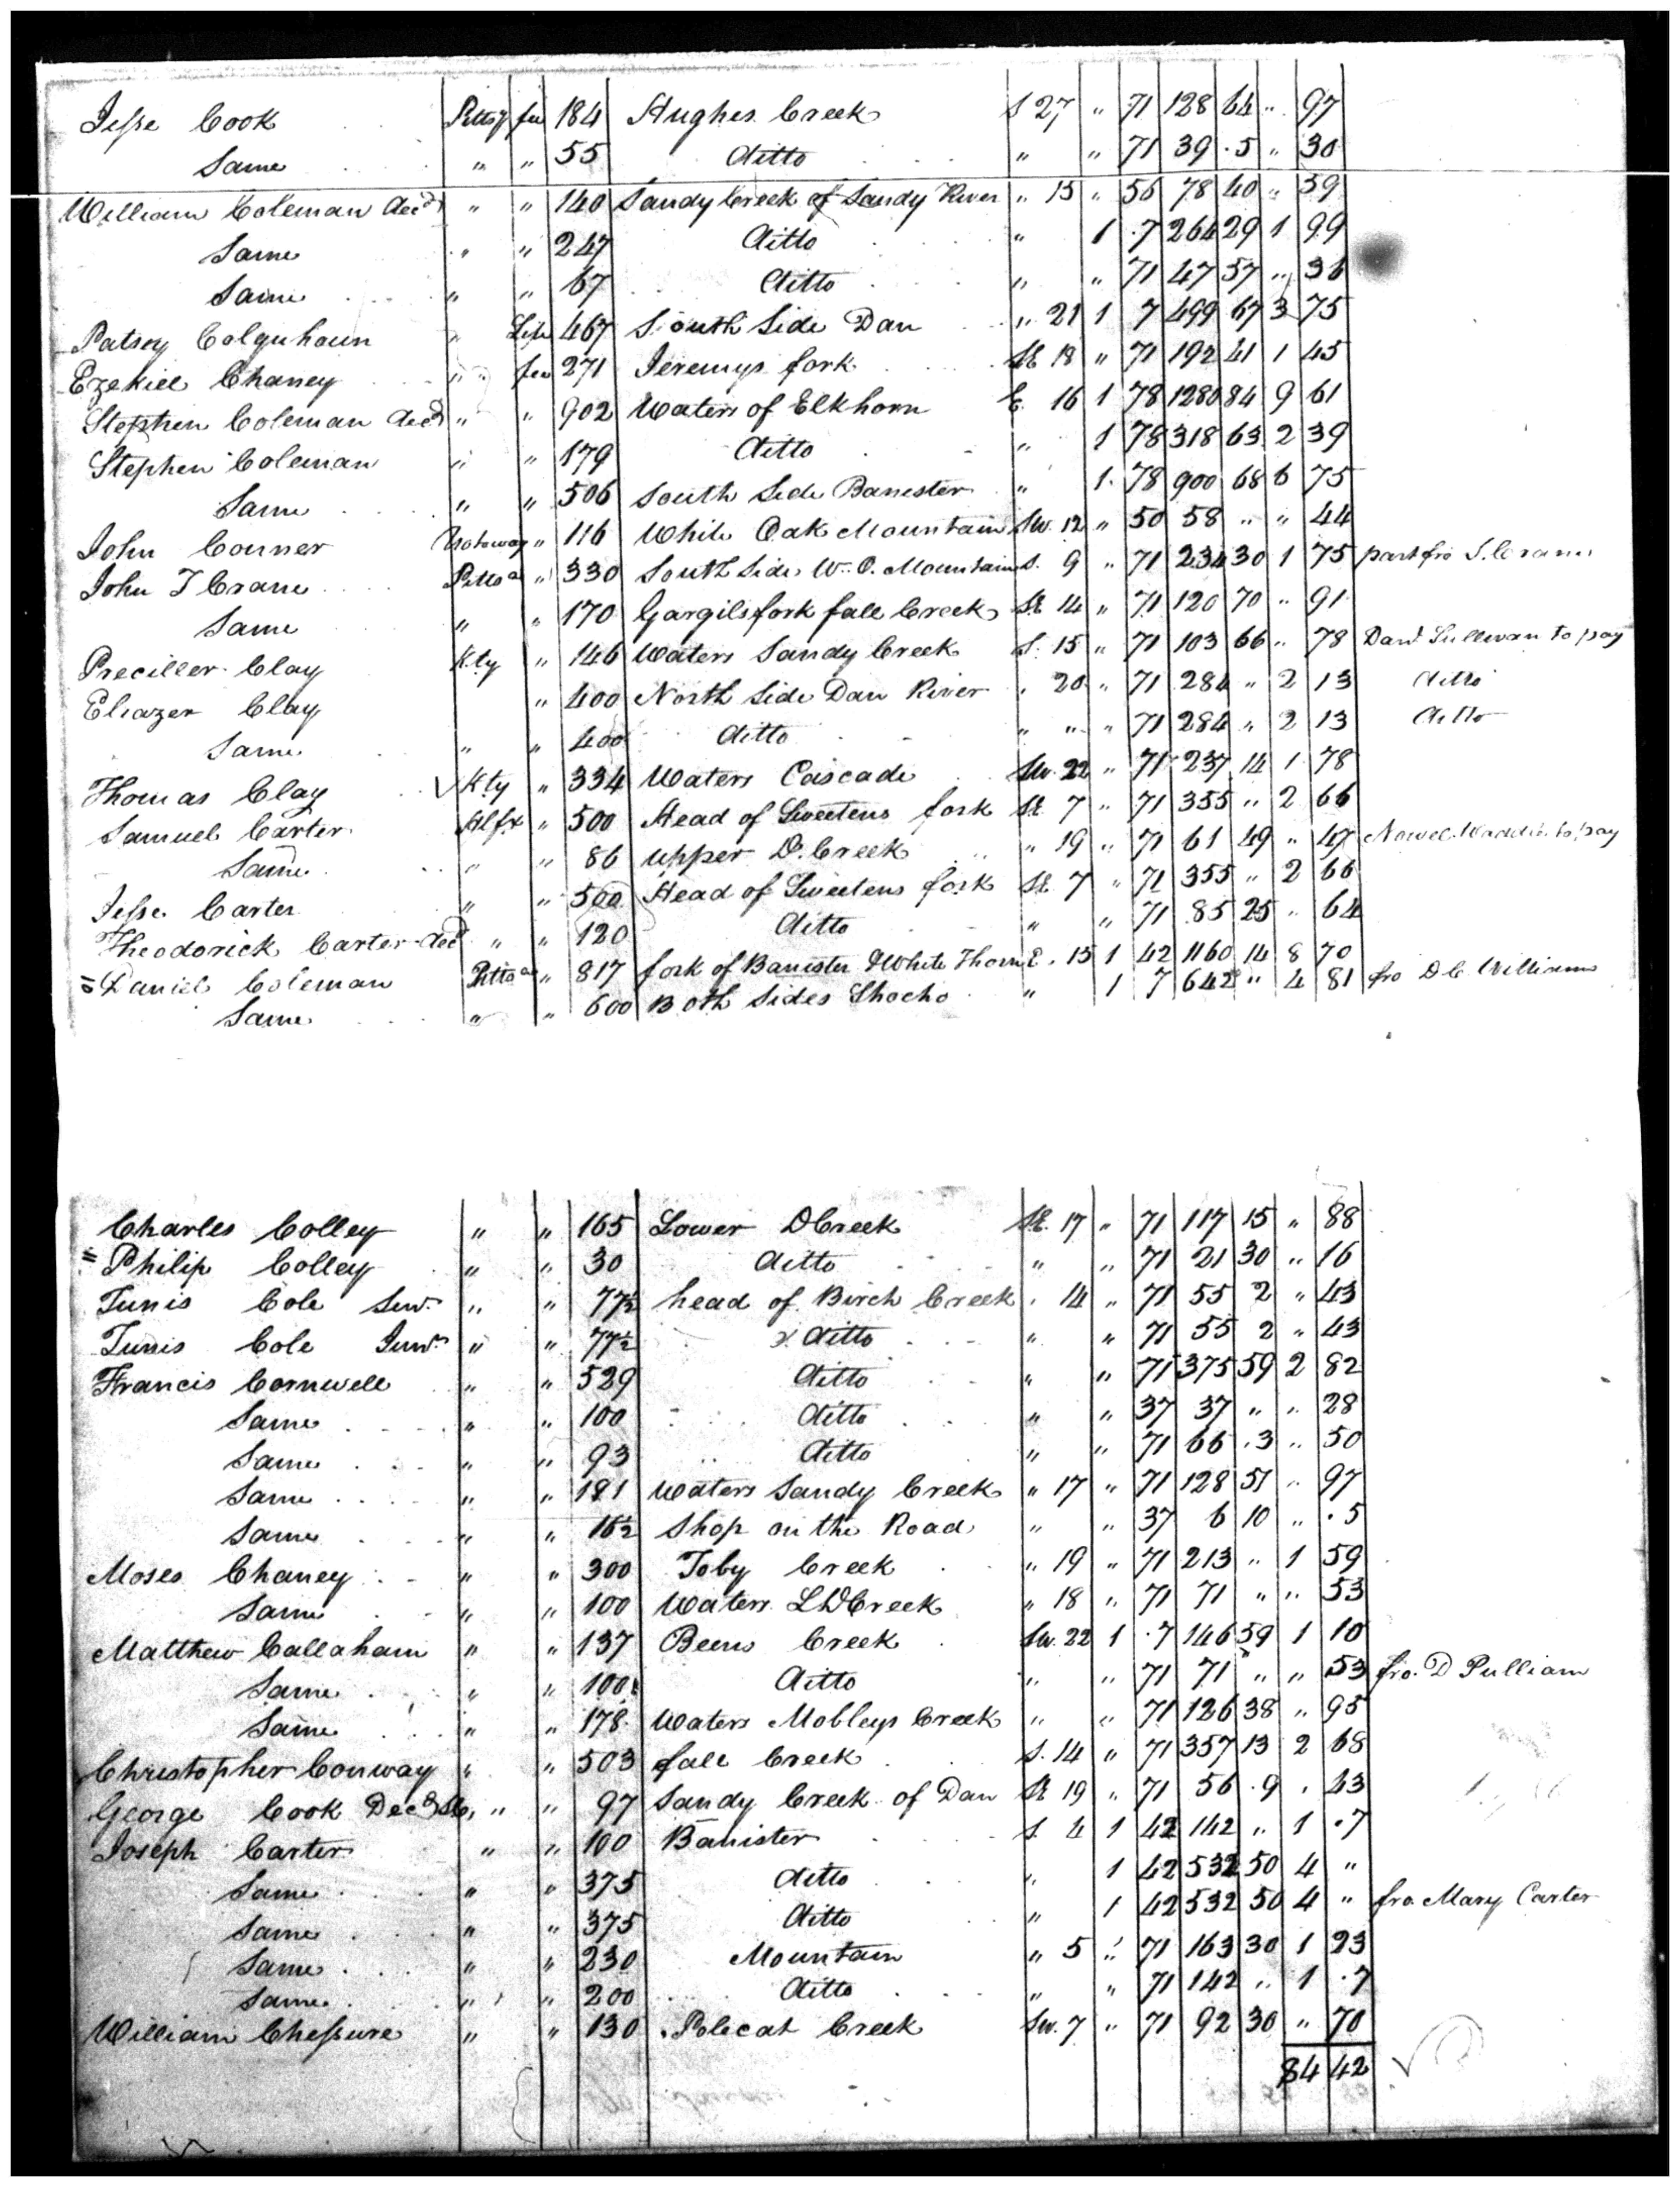 Jesse Cook Pittsy fee 184 Hughes Creek S 27 " 71 128 64 " 97
Same " " 55 ditto " " 71 39 .5 " 30
William Coleman decd " " 140 Sandy Creek of Sandy River " 15 " 56 78 40 " 59
Same " " 247 ditto " 1 .7 264 29 1 99
Same " " 67 ditto " " 71 47 57 " 36
Patsey Colquhoun " Life 467 South Side Dan " 21 1 7 499 67 3 75
Ezekiel Chaney " fee 271 Jeremys fork SE 18 " 71 192 41 1 45
Stephen Coleman decd " " 902 Waters of Elkhorn E. 16 1 78 1280 84 9 61
Stephen Coleman " " 179 ditto " 1 78 318 63 2 39
Same " " 506 South Side Banester " 1. 78 900 68 6 75
John Conner Notoway " 116 White Oak Mountain SW. 12 " 50 58 " " 44
John T Crane Pittsa " 330 South Side W. O. Mountain S. 9 " 71 234 30 1 75 part fro S. Crane
Same " " 170 Gargils fork fall Creek SE 14 " 71 120 70 " 91
Preciller Clay Kty " 146 Waters Sandy Creek S. 15 " 71 103 66 " 78 Danl Sullivan to pay
Eliazer Clay " 400 North Side Dan River " 20 " 71 284 " 2 13 ditto
Same " " 400 ditto " " " 71 284 " 2 13 ditto
Thomas Clay Kty " 334 Waters Cascade SW. 22 " 71 237 14 1 78
Samuel Carter Hlfx " 500 Head of Sweetens fork SE 7 " 71 355 " 2 66
Same " " 86 upper D. Creek " 19 " 71 61 49 " 47 to pay
Jesse Carter " " 500 Head of Sweetens fork SE 7 " 71 355 " 2 66
Theodorick Carter decd " " 120 ditto " " 71 85 25 " 64
Daniel Coleman Pittsa " 817 fork of Banister & White Thorn E. 15 1 42 1160 14 8 70
Same " " 600 Both Sides Shocho " 1 7 642 " 4 81 fro D C Williams
Charles Colley " " 165 Lower D Creek SE 17 " 71 117 15 " 88
Philip Colley " " 30 ditto " " 71 21 30 " 16
Tunis Cole Senr " " 77½ head of Birch Creek " 14 " 71 55 2 " 43
Tunis Cole Junr " " 77½ ditto " " 71 55 2 " 43
Francis Cornwell " " 529 ditto " " 71 375 59 2 82
Same " " 100 ditto " " 37 37 " " 28
Same " " 93 ditto " " 71 66 .3 " 50
Same " " 181 Waters Sandy Creek " 17 " 71 128 51 " 97
Same " " 16½ Shop on the Road " " 37 6 10 " .5
Moses Chaney " " 300 Toby Creek " 19 " 71 213 " 1 59
Same " " 100 Waters L D Creek " 18 " 71 71 " " 53
Matthew Callaham " " 137 Beens Creek SW. 22 1 .7 146 59 1 10
Same " " 100 ditto " " 71 71 " " 53 fro. D Pulliam
Same " " 178 Waters Mobleys Creek " " 71 126 38 " 95
Christopher Conway " " 503 fall Creek S. 14 " 71 357 13 2 68
George Cook Decd " " 97 Sandy Creek of Dan SE 19 " 71 56 .9 " 43
Joseph Carter " " 100 Banister S. 4 1 42 142 " 1 .7
Same " " 375 ditto " 1 42 532 50 4 "
Same " " 375 ditto " 1 42 532 50 4 " fro. Mary Carter
Same " " 230 Mountain " 5 " 71 163 30 1 23
Same " " 200 ditto " " 71 142 " 1 .7
William Chessure " " 130 Polecat Creek SW. 7 " 71 92 30 " 70
84 42